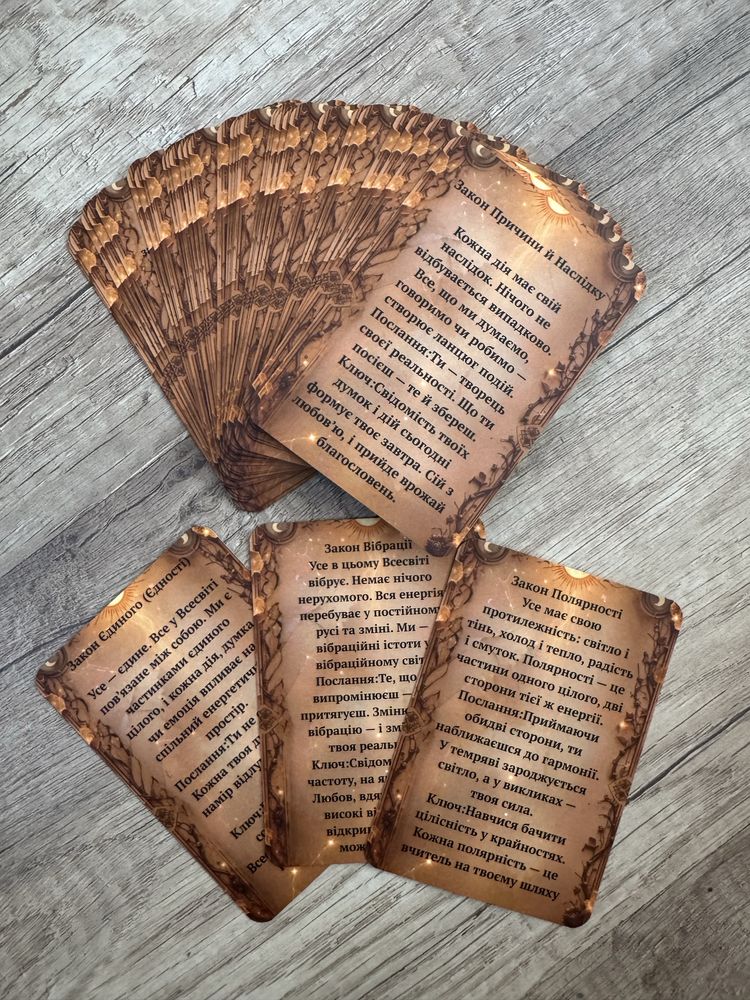 Закон Причини й Наслідку
Кожна дія має свій
наслідок. Нічого не
відбувається випадково.
Все, що ми думаємо,
говоримо чи робимо —
створює ланцюг подій.
Послання:Ти — творець
своєї реальності. Що ти
посієш — те й збереш.
Ключ:Свідомість твоїх
думок і дій сьогодні
формує твоє завтра. Сій з
любов'ю, і прийде врожай
благословень.
Закон Єдиного (Єдності)
Усе — єдине. Все у Всесвіті
пов'язане між собою. Ми є
частинками єдиного
цілого, і кожна дія, думка
чи емоція впливає на
спільний енергетичн
простір.
Послання:Ти не
Кожна твоя д
намір відлу
Ключ:
Все
Закон Вібрації
Усе в цьому Всесвіті
вібрує. Немає нічого
нерухомого. Вся енергія
перебуває у постійному
русі та зміні. Ми —
вібраційні істоти у
вібраційному світ
Послання:Те, що
випромінюєш —
притягуєш. Зміни
вібрацію — і зм
твоя реаль
Ключ:Свідом
частоту, на як
Любов, вдя
високі ві
відкри
мож
Закон Полярності
Усе має свою
протилежність: світло і
тінь, холод і тепло, радість
і смуток. Полярності — це
частини одного цілого, дві
сторони тієї ж енергії.
Послання:Приймаючи
обидві сторони, ти
наближаєшся до гармонії.
У темряві зароджується
світло, а у викликах —
твоя сила.
Ключ:Навчися бачити
цілісність у крайностях.
Кожна полярність — це
вчитель на твоєму шляху